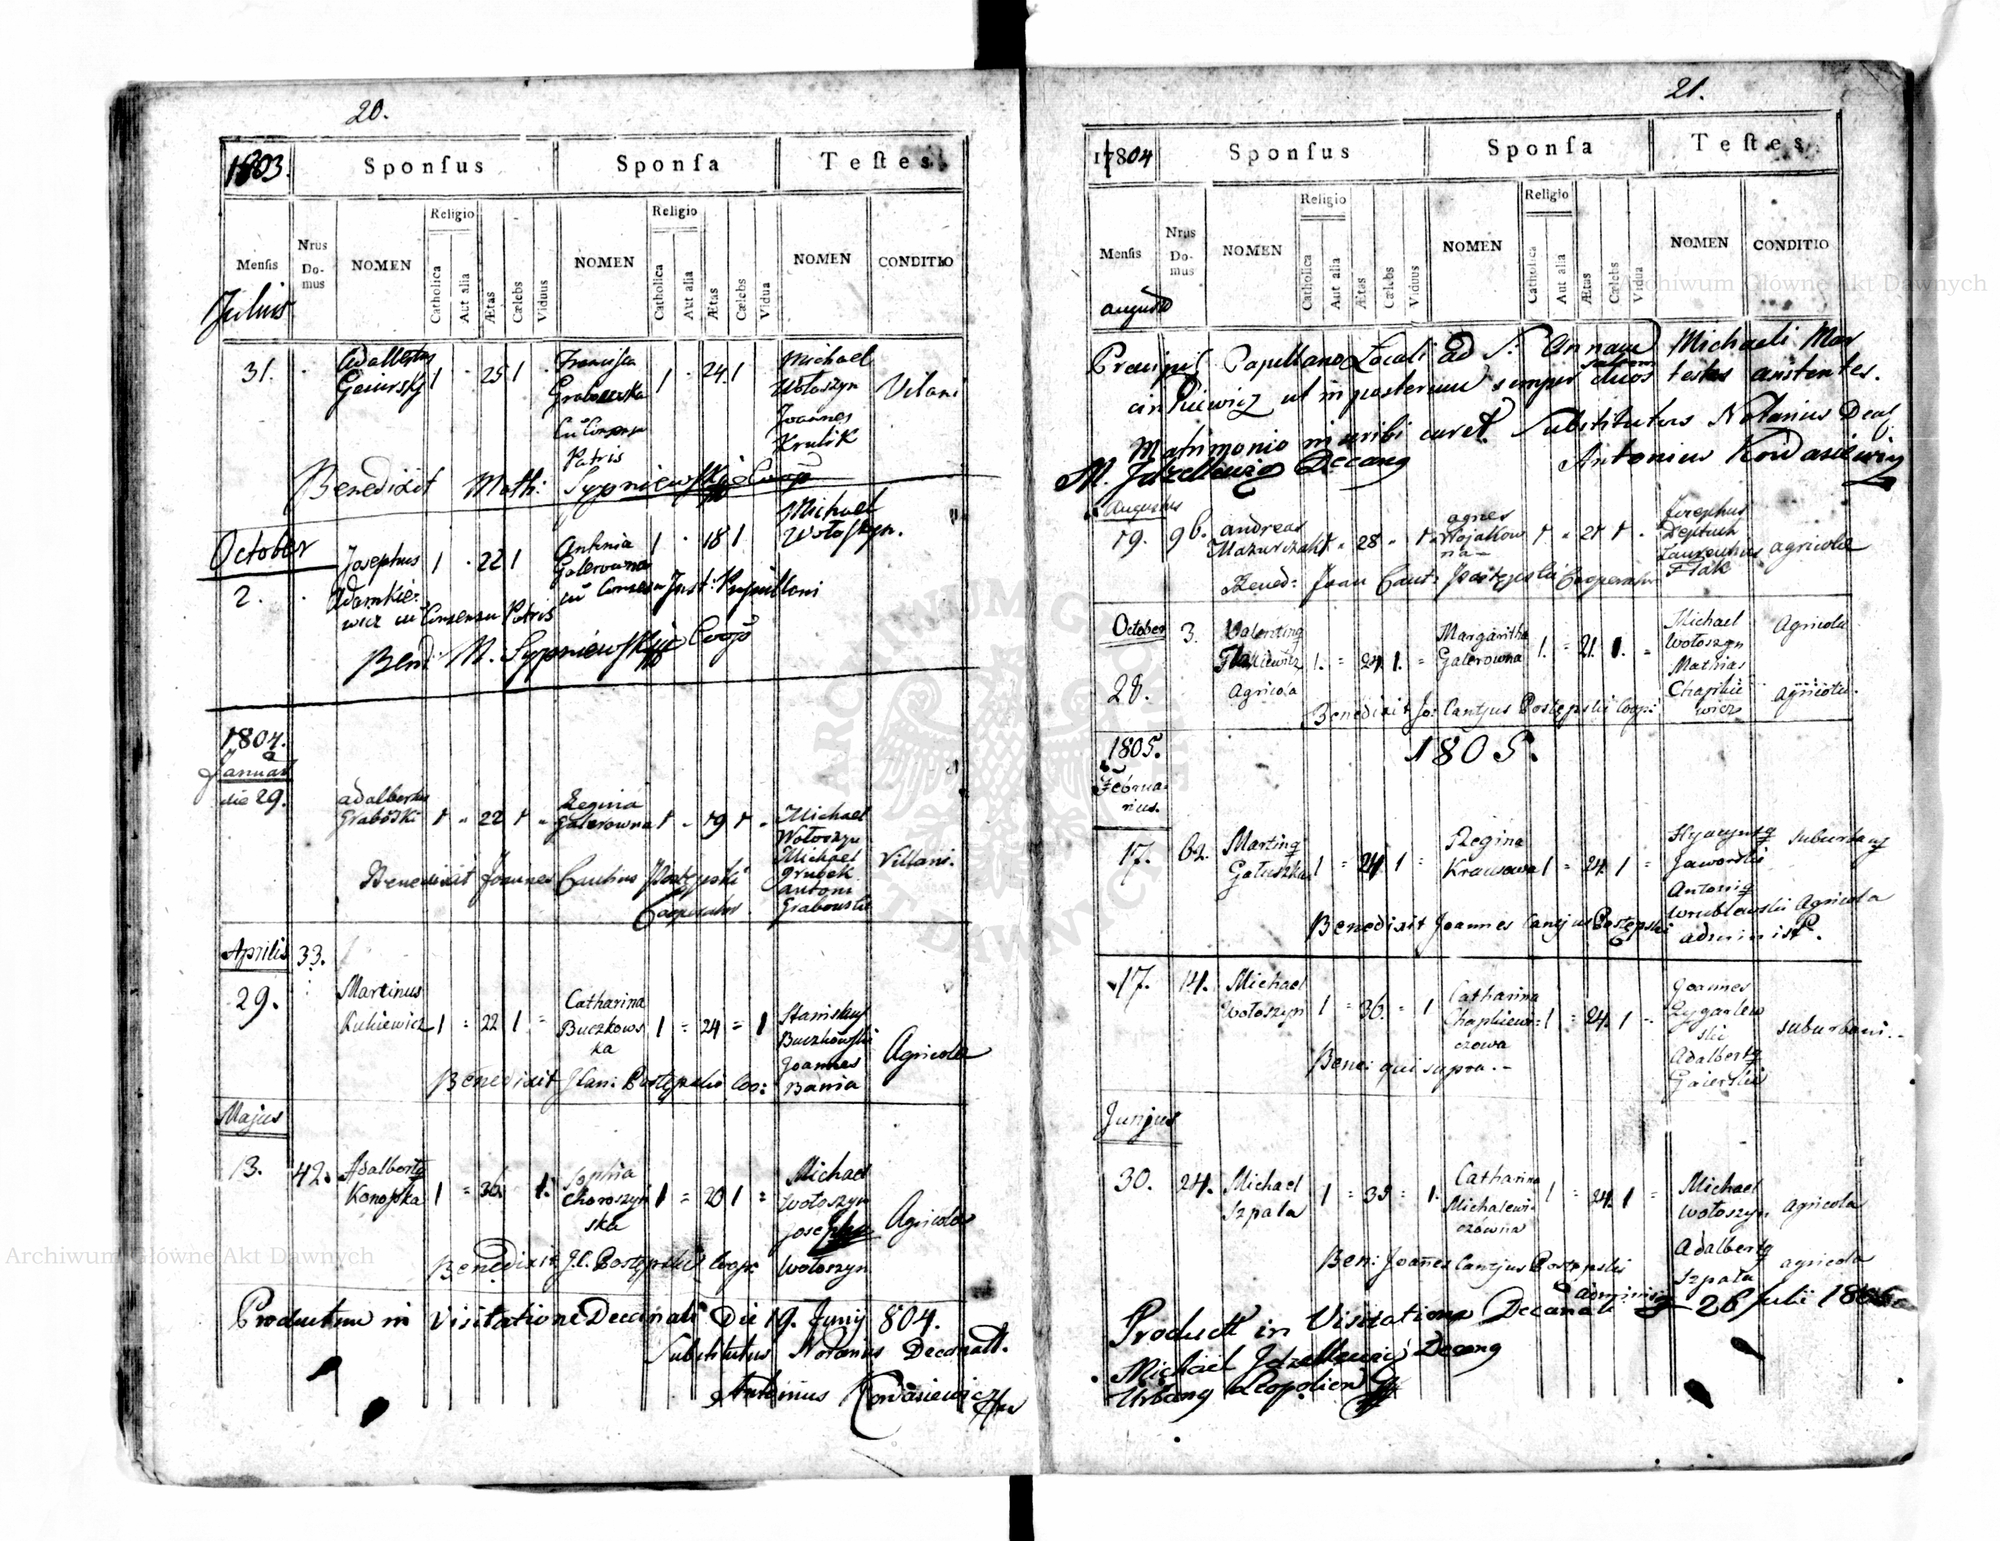 20.
1803.
Sponsus
Sponsa
Testes
Mensis
Nrus
Do-
mus
NOMEN
Religio
Catholica
Aut alia
Ætas
Cælebs
Viduus
NOMEN
Religio
Catholica
Aut alia
Ætas
Cælebs
Vidua
NOMEN
CONDITIO
Julius
31.
Adalbertus
1 25 1
Francisca
Grabowska
Patris
1 24 1
Michael
Wołoszyn
Joannes
Krulik
Vilani
Benedixit Math: Sypniewski Coop
October
2.
Josephus
Adamkie-
wicz cu Consensu Patris
1 22 1
Antonia
Galerowna
1 18 1
Michael
Wołoszyn.
Bened: M. Sypniewski Coop
1804.
Januar
die 29.
adalbertus
Grabski
1 22 1
Regina
Galerowna
1 19 1
Michael
Wołoszyn
Michael
Grubek
Antoni
Grabowski
Villani.
Benedixit Joannes Cantius Postępski
Cooperator
Aprilis
33.
29.
Martinus
Kukiewicz
1 = 22 1 =
Catharina
Buczkows
ka
1 = 24 = 1
Stanislaus
Buczkowski
Joannes
Bania
Agricola
Benedixit J Can: Postępski Coo:
Majus
13.
42.
Adalbertq
Konopka
1 = 36. 1.
Sophia
Choroszyń
ska
1 = 20 1 =
Michael
Wołoszyn
Joseph
Wołoszyn
Agricola
Benedixit J.C. Postępski Coop:
Productum in Visitatione Decanali Die 19. Junij 804.
Substitutus Notarius Decanall.
Antonius Kowasiewicz
21.
17804
Sponsus
Sponsa
Testes
Mensis
Nrus
Do-
mus
NOMEN
Religio
Catholica
Aut alia
Ætas
Cælebs
Viduus
NOMEN
Religio
Catholica
Aut alia
Ætas
Cælebs
Vidua
NOMEN
CONDITIO
august
Capellano Locali ad S: Annam Michaeli Mar
ut in posterum semper duos testes assistentes.
Matrimonio inscribi curet. Substitutus Notarius Decal
M. Jdzellewicz Decanq Antonius Kowasiewicz
Augustus
19.
96.
andreas
Mazurczak
1 28 1
agnes
Wojakow
na
1 21 1
Josephus
Deptuch
Laurentius
Flak
agricola
Bened: Joan Cant: Postępski Cooperator
October
3.
28.
Valentinq
Flakiewicz
Agricola
1. = 24 1. =
Margaritha
Galerowna
1. = 21. 1. =
Michael
Wołoszyn
Mathias
Chapkie
wicz
Agricola
agricola.
Benedixit Jo: Cantjus Postępski Coop:
1805.
1805.
Februa-
rius.
17.
62.
Martinq
Gałuszka
1 = 24 1 =
Regina
Krausowa
1 = 24 1 =
Hyacyntq
Jaworski
Antoniq
Wrublewski
suburbanj
Agricola
Benedixit Joannes Cantjus Postępski administ.
17.
14.
Michael
Wołoszyn
1 = 36. = 1
Catharina
Chapkiewi-
czowa
1 = 24. 1 =
Joannes
Zygarlew
ski
Adalbertq
Gaierski
suburbani.
Bene: qui supra.
Junjus
30.
24.
Michael
Szpała
1 = 35 = 1.
Catharina
Michalewi-
czówna
1 = 24. 1 =
Michael
Wołoszyn
Adalbertq
Szpała
agricola
agricola
Ben: Joanes Cantjus Postępski
Product in Visitatione Decanali 26 Julii
Michael Jdzellewicz Decanq
Urbanq Leopolien
Archiwum Główne Akt Dawnych
Archiwum Główne Akt Dawnych
ARCHIWUM GŁÓWNE AKT DAWNYCH